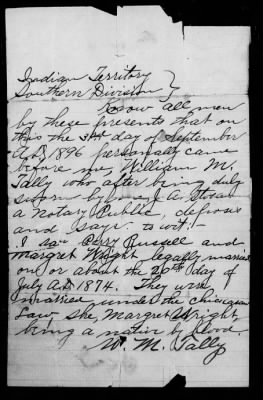 Indian Territory
Southern Division }
Know all men
by these presents that on
this the 3rd day of September
A.D. 1896 personally came
before me, William M.
Tally who after being duly
sworn by me A.
a Notary Public, deposes
and says to wit:-
I saw Perry Russell and
Margret Wright legally married
on or about the 20th day of
July A.D. 1874. They were
married under the Chickasaw
Law she, Margret Wright
being a native by blood.
W. M. Tally